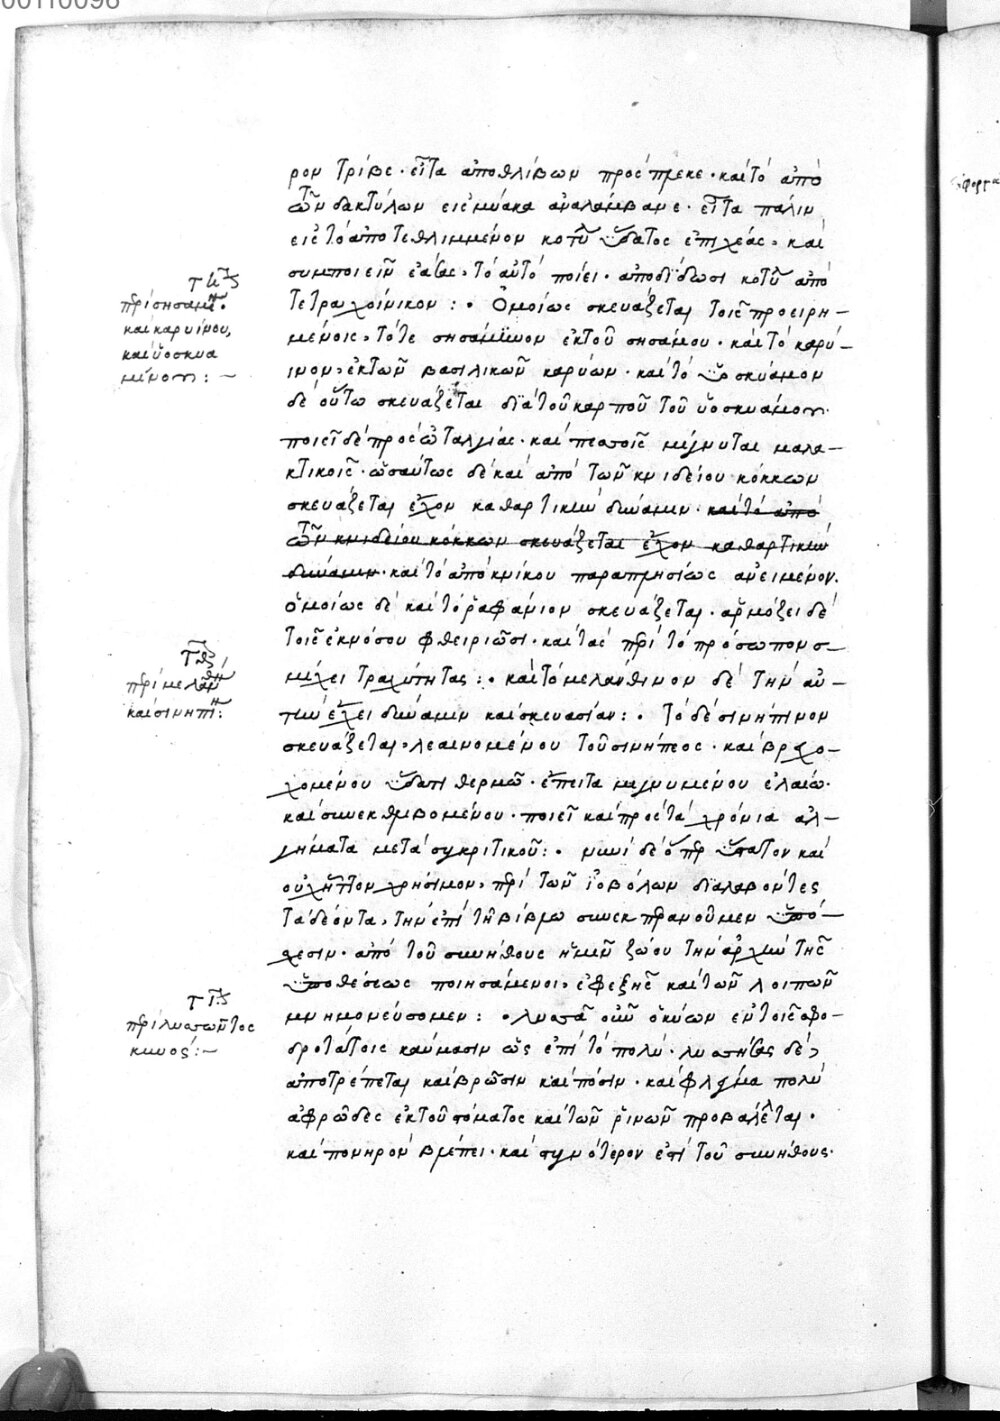 00110098
ρον τρίβε· εἶτα ἀποθλίβων πρόσπλεκε· καὶ τὸ ἀπὸ
τῶν δακτύλων εἰς μύακα ἀναλάμβανε· εἶτα πάλιν
εἰς τὸ ἀποτεθλιμμένον κοτύ ὕδατος ἐπιχέας, καὶ
συμπιεῖν ἐάσας, τὸ αὐτὸ ποίει· ἀποδίδωσι κοτύ ἀπὸ
τετραχοίνικον: · Ὁμοίως σκευάζεται τοῖς προειρη-
μένοις, τό τε σησάμινον ἐκ τοῦ σησάμου· καὶ τὸ καρύ-
ινον, ἐκ τῶν βασιλικῶν καρύων· καὶ τὸ ὑοσκυάμον
δὲ οὕτω σκευάζεται διὰ τοῦ καρποῦ τοῦ ὑοσκυάμου·
ποιεῖ δὲ πρὸς ὠταλγίας· καὶ πεσσοῖς μίγνυται μαλα-
κτικοῖς· ὡσαύτως δὲ καὶ ἀπὸ τῶν κνιδείου κόκκων
σκευάζεται ἔχον καθαρτικὴν δύναμιν· καὶ τὸ ἀπὸ
τῶν κνιδείου κόκκων σκευάζεται ἔχον καθαρτικὴν
δύναμιν· καὶ τὸ ἀπὸ κνίκου παραπλησίως ἀνειμένον.
ὁμοίως δὲ καὶ τὸ ῥαφάνιον σκευάζεται· ἁρμόζει δὲ
τοῖς ἐκ νόσου φθειριῶσι· καὶ τὰς περὶ τὸ πρόσωπον σ-
μήχει τραχύτητας: · καὶ τὸ μελάνθινον δὲ τὴν αὐ-
τὴν ἔχει δύναμιν καὶ σκευασίαν: · Τὸ δὲ σινήπινον
σκευάζεται, λεαινομένου τοῦ σινήπεος· καὶ βρεχο-
χομένου ὕδατι θερμῶ· ἔπειτα μιγνυμένου ἐλαίω·
καὶ συνεκθλιβομένου· ποιεῖ καὶ πρὸς τὰ χρόνια ἀλ-
γήματα μετασυγκριτικοῦ: · νυνὶ δὲ ὅπερ ὕστατον καὶ
οὐχ ἧττον χρήσιμον, περὶ τῶν ἰοβόλων διαλαβόντες
τὰ δέοντα, τὴν ἐπὶ τῆ βίβλω συνεκπερανοῦμεν ὑπό-
θεσιν· ἀπὸ τοῦ συνήθους ἡμῖν ζώου τὴν ἀρχὴν τῆς
ὑποθέσεως ποιησάμενοι, ἐφεξῆς καὶ τῶν λοιπῶν
μνημονεύσομεν: · λυσσᾶ οὖν ὁ κύων ἐν τοῖς σφο-
δροτάτοις καύμασιν ὡς ἐπὶ τὸ πολύ· λυσσήσας δὲ,
ἀποτρέπεται καὶ βρῶσιν καὶ πόσιν· καὶ φλέγμα πολὺ
ἀφρῶδες ἐκ τοῦ στόματος καὶ τῶν ῥινῶν προβάλλεται·
καὶ πονηρὸν βλέπει· καὶ στυγνότερον ἐπὶ τοῦ συνήθους·
περὶ σησαμί·
καὶ καρυίνου,
καὶ ὑοσκυα
μίνου: ~
περὶ μελανθ
καὶ σινηπί:
περὶ λυσσῶντος
κυνός: ~